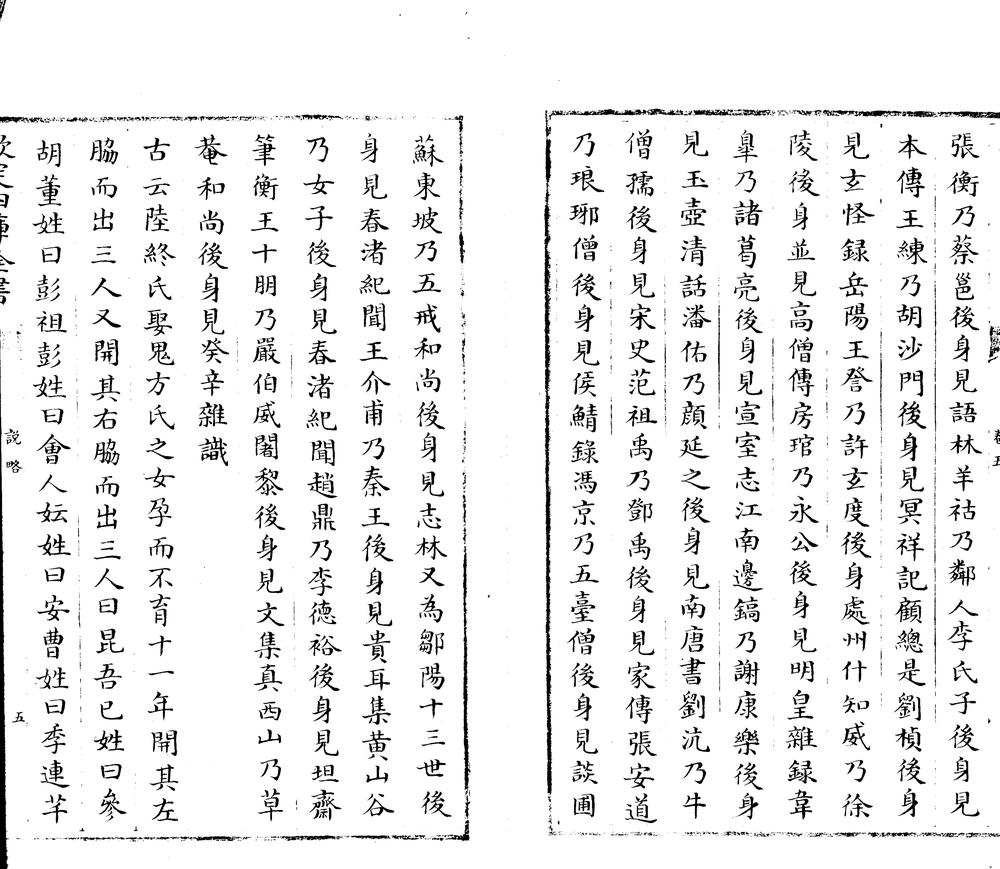 張衡乃蔡邕後身見語林羊祜乃鄰人李氏子後身見
本傳王練乃胡沙門後身見冥祥記顧總是劉楨後身
見玄怪録岳陽王詧乃許玄度後身處州什知威乃徐
陵後身並見高僧傳房琯乃永公後身見明皇雜録韋
臯乃諸葛亮後身見宣室志江南邊鎬乃謝康樂後身
見玉壺清話潘佑乃顔延之後身見南唐書劉沆乃牛
僧孺後身見宋史范祖禹乃鄧禹後身見家傳張安道
乃琅琊僧後身見侯鯖錄馮京乃五臺僧後身見談圃
蘇東坡乃五戒和尚後身見志林又為鄒陽十三世後
身見春渚紀聞王介甫乃秦王後身見貴耳集黄山谷
乃女子後身見春渚紀聞趙鼎乃李德裕後身見坦齋
筆衡王十朋乃嚴伯威闍黎後身見文集真西山乃草
菴和尚後身見癸辛雜識
古云陸終氏娶鬼方氏之女孕而不育十一年開其左
脇而出三人又開其右脇而出三人曰昆吾已姓曰參
胡董姓曰彭祖彭姓曰會人妘姓曰安曹姓曰季連芊
説略
五